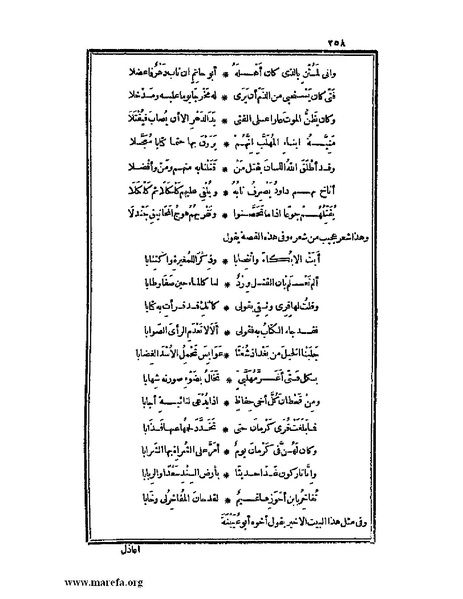 ٣٥٨
وانى لمثن بالذى كان أهله * أبو حاتم ان ناب دهر فأعضلا
فتى كان يستحيى من الذم أن يرى * له مخر بابو ما عليه ومدخلا
وكان يظن الموت عارا على الفتى * يد الدهر الا أن يصاب فيقتلا
منية أبناء المهلب انهم * يرون بها حتما كتابا معجلا
وقد أطلق الله اللسان بقتل من * قتلنا به منهم ومن وأفضلا
أناخ بهم داود يصرف نابه * ويلقى عليهم كلكلا ثم كلكلا
يقتلهم جوعا اذا ما تحصنوا * وتقريهم هوج المجانيق جندلا
وهذا شعر عجيب من شعره وفى هذه القصة يقول
أبت الا بكاء وانتحابا * وذكرا للمغيرة واكتئابا
ألم تعلم بأن القتل ورد * لنا كالماء حين صفا وطابا
وقلت لها قرى وثقى بقولى * كأنك قد قرأت به كتابا
فقد جاء الكتاب به فقولى * ألا لا تعدم الرأى الصوابا
جلبنا الخيل من بغداد شعثا * عوابس تحمل الأسد الغضابا
بكل فتى أغر مهلبى * تخال بضوء صورته شهابا
ومن قحطان كل أخى حفاظ * اذا يدعى لنائبة أجابا
فما بلغت قرى كرمان حتى * تخدد لحمها عنها فذابا
وكان لهن فى كرمان يوم * أمر على الشراة بها الشرابا
وانا تاركون غدا حديثا * بأرض السند سعدا والربابا
تفاخر بابن أحوزها تميم * لقد حان المفاخر لى وخابا
وفى مثل هذا البيت الاخير يقول أخوه أبو عيينة
أعاذل
www.marefa.org